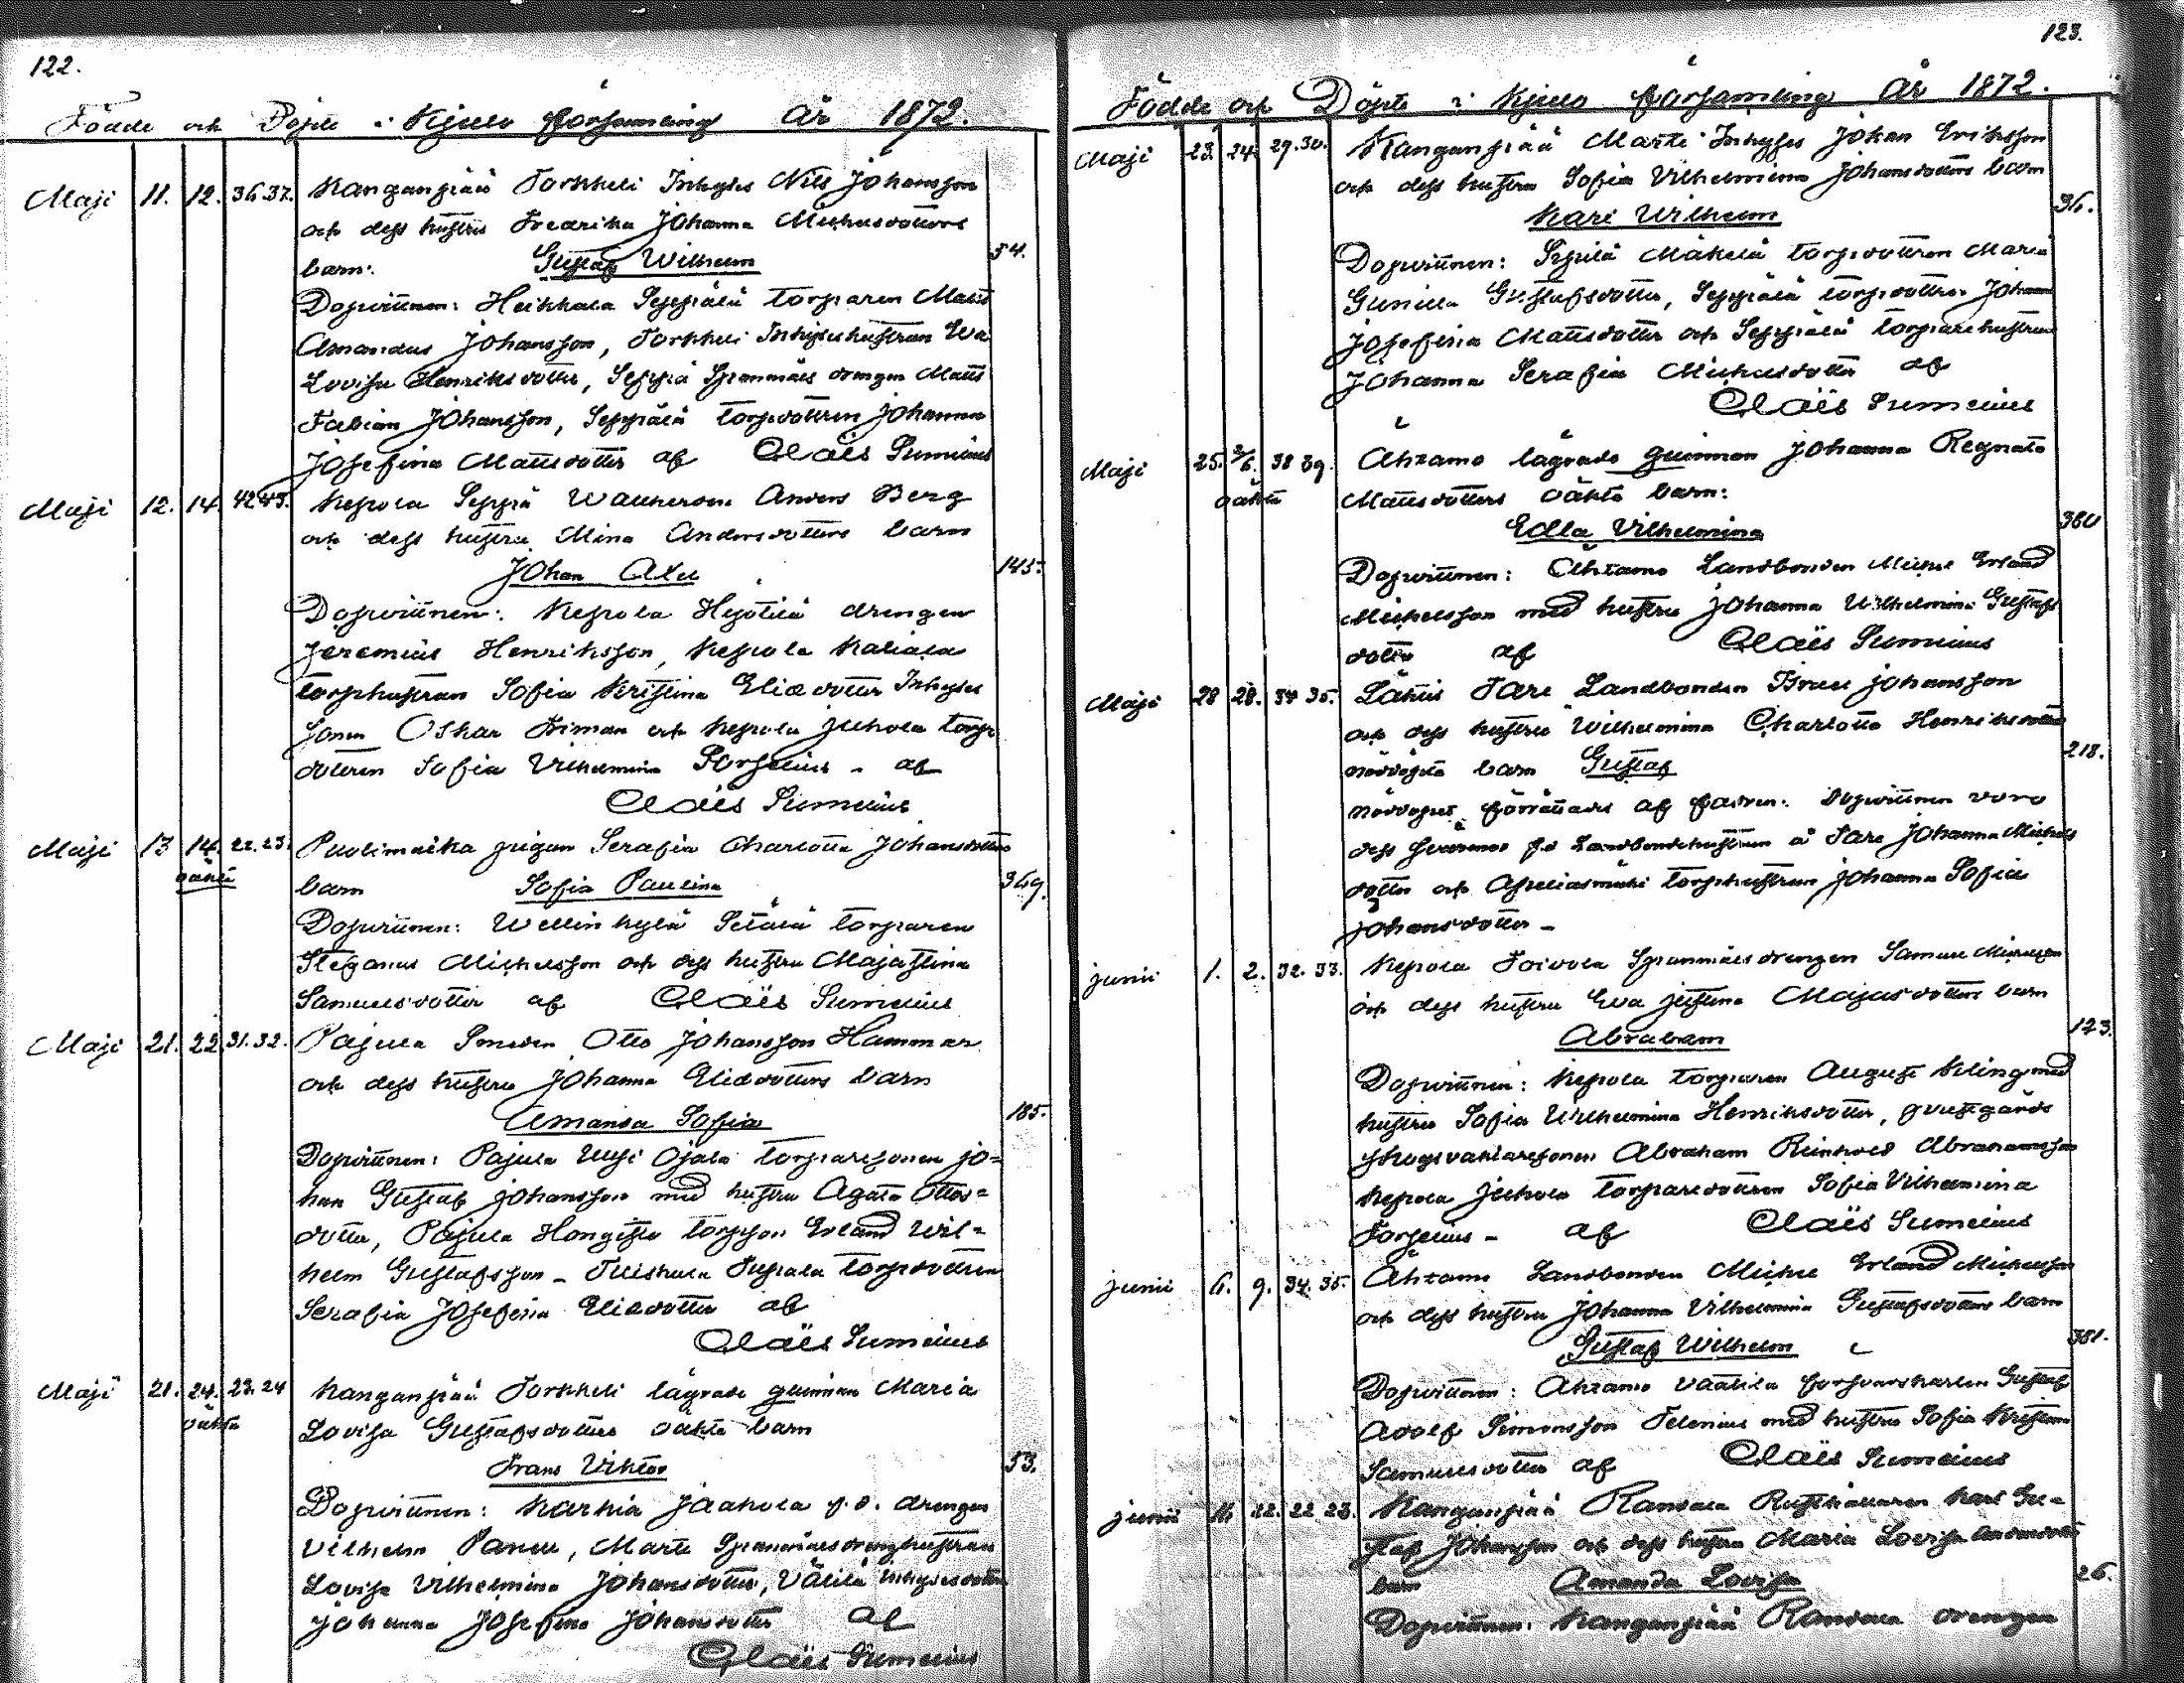 122.
Födde och Döpte i Kjulo församling År 1872.
Maji 11. 12. 36.37. Kanganpää Torkkeli Inhyses Nils Johansson
och dess hustru Fredrika Johanna Michelsdotters
barn: Gustaf Wilhelm 54.
Dopvittnen: Heikkala Seppälä torparen Matts
Amandus Johansson, Torkkeli Inhyseshustrun Eva
Lovisa Henriksdotter, Seppä Spanmäls drengen Matts
Fabian Johansson, Seppälä torpdottren Johanna
Josefina Mattsdotter af Claës Sumelius
Maji 12. 14. 42.43. Kepola Seppä Anders Berg
och dess hustru Mina Andersdotters barn
Johan Axel 145.
Dopvittnen: Kepola Hepotilä drengen
Jeremias Henriksson, Kepola
torphustrun Sofia Kristina Eliædotter Inhyses
sonen Oskar och Kepola Juhola torp
dottren Sofia Vilhelmina Forselius - af
Claës Sumelius
Maji 13 14. 22.23. Puolimatka pigan Serafia Charlotta Johansdotters
oäkta barn Sofia Paulina 369.
Dopvittnen: Wellin kylä Setälä torparen
Stefanus Michelsson och dess hustru Majastina
Samuelsdotter af Claës Sumelius
Maji 21. 22. 31.32. Pajula Smeden Otto Johansson Hammar
och dess hustru Johanna Eliædotters barn
Amanda Sofia 185.
Dopvittnen: Pajula Uusi Ojala torparesonen Jo=
han Gustaf Johansson med hustru Agata Ottos=
dotter, Pajula Hongisto torpson Erland Wil=
helm Gustafsson - Tuiskula torpdottren
Serafia Josefina Eliædotter af
Claës Sumelius
Maji 21. 24. 23.24 Kanganpää Torkkeli lägrade qvinnan Maria
oäkta Lovisa Gustafsdotters oäkta barn
Frans Viktor 53.
Dopvittnen: Karhia Jaakola f.d. drengen
Vilhelm Paneli, Martti Spanmälsdrenghustrun
Lovisa Vilhelmina Johansdotter, Välilä Inhysesdotter
Johanna Josefina Johansdotter af
Claës Sumelius
123.
Födde och Döpte i Kjulo församling År 1872.
Maji 23. 24. 29.30. Kanganpää Martti Inhyses Johan Eriksson
och dess hustru Sofia Vilhelmina Johansdotters barn
Karl Wilhelm 36.
Dopvittnen: Sepilä Mäkelä torpdottren Maria
Gunilla Gustafsdotter, Seppälä torpdottren Johanna
Josefina Mattsdotter och Seppälä torparehustrun
Johanna Serafia Michelsdotter af
Claës Sumelius
Maji 25. 2/6. 38 39. Ahtamo lägrade qvinnan Johanna Regnata
oäkta Mattsdotters oäkta barn:
Edla Vilhelmina 380
Dopvittnen: Ahtamo Landbonden Michel Erland
Michelsson med hustru Johanna Wilhelmina Gustafs
dotter af Claës Sumelius
Maji 28 28. 34 35. Lähtis Tare Landbonden Johansson
och dess hustru Wilhelmina Charlotta Henriksdotters
nöddöpta barn Gustaf 218.
nöddopet förrättades af fadren. Dopvittnen voro
dess f.d. Landbondehustrun å Tare Johanna Michels
dotter och torphustrun Johanna Sofia
Johansdotter -
Junii 1. 2. 32. 33. Kepola Toivola Spanmälsdrengen Samuel Michelsson
och dess hustru Eva Justina Majasdotters barn
Abraham 123.
Dopvittnen: Kepola torparen August Kiling med
hustru Sofia Wilhelmina Henriksdotter,
skogsvaktaresonen Abraham Reinhold Abrahamsson
Kepola Juhola torparedottren Sofia Vilhelmina
Forselius - af Claës Sumelius
Junii 6. 9. 34. 35. Ahtamo Landbonden Michel Erland Michelsson
och dess hustru Johanna Vilhelmina Gustafsdotters barn
Gustaf Wilhelm 381.
Dopvittnen: Ahtamo Väätilä försvarskarlen Gustaf
Adolf Simonsson Selenius med hustru Sofia Kristina
Samuelsdotter af Claës Sumelius
Junii 11. 12. 22 23. Kanganpää Randala Rusthållaren Karl Gu=
staf Johansson och dess hustru Maria Lovisa Andersdotters
barn Amanda Lovisa 26.
Dopvittnen: Kanganpää Randala drengen